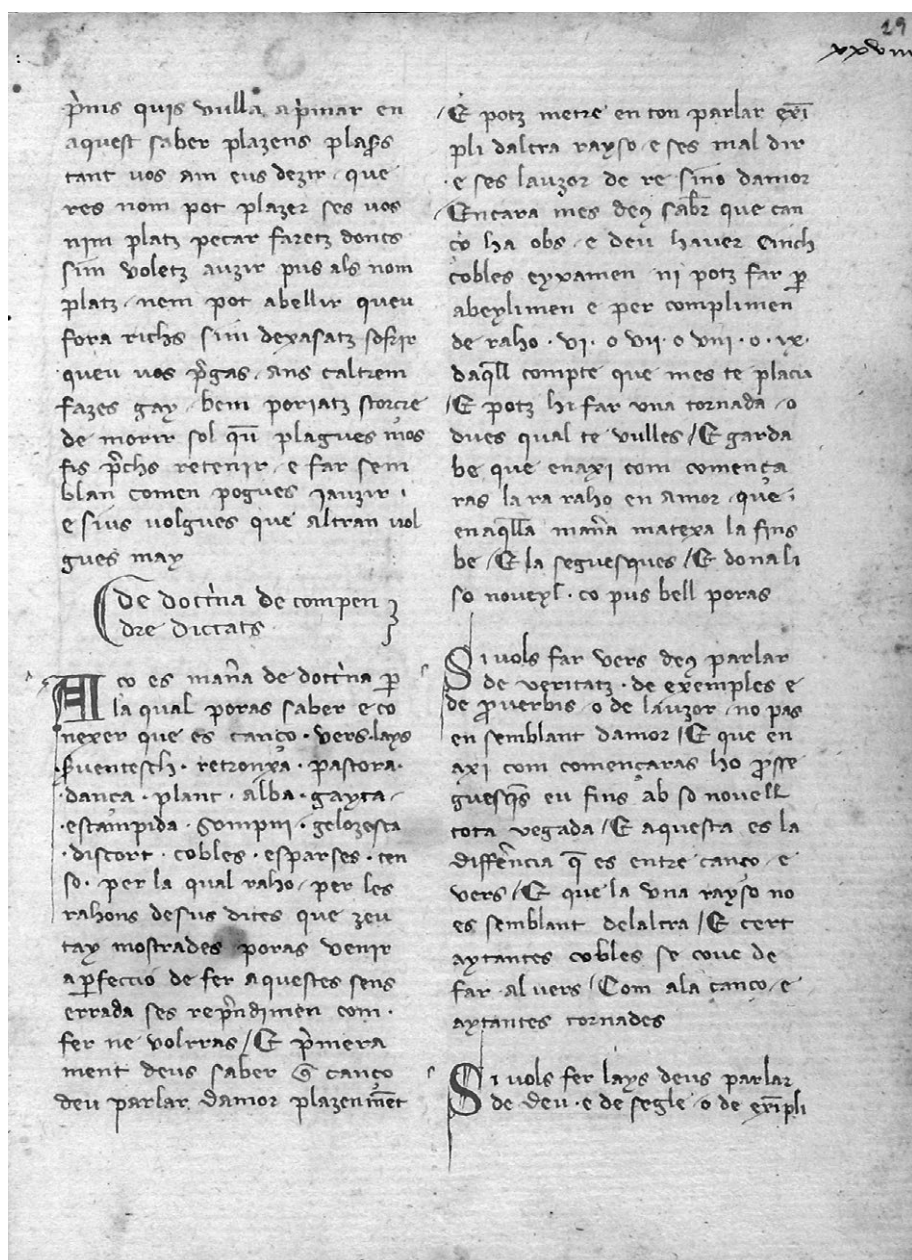 29
xxviii
p̃mis quis vulla ap̃mar en
aquest saber plazens plasẽs
tant vos am eus dezir que
res nom pot plazer ses vos
nim platz pecar faretz doncs
sim voletz auzir pus als nom
platz nem pot abellir queu
fora richs sim dexasatz sofrir
queu vos p̃gas ans caltrem
fazes gay bem poriatz storcre
de morir sol qũ plagues mos
fis p̃chs retenir e far sem
blan comen pogues jauzir
e sius volgues que altran vol
gues may
De doct̃na de compen
dre dictats
Aco es mañ̃a de doct̃na ꝑ
la qual poras saber e co
nexer que es canço · vers · lays
· Ṡventesch · retronxa · pastora ·
· dança · plant · alba · gayta
· estampida · sompni · gelozesca
· discort · cobles · esparses · ten
so · per la qual raho per les
rahons desus dites que zeu
tay mostrades poras venir
a ꝑfeccio de fer aquestes sens
errada ses rep̃ndimen com
fer ne volrras / E p̃mera
ment deus saber q̃ canço
deu parlar damor plazenmẽt
/ E potz metre en ton parlar exẽ
pli daltra rayso e ses mal dir
· e ses lauzor de re sino damor
/ Encara mes deꝰ sab̃r que can
ço ha obs e deu haver Cinch
cobles eyxamen ni potz far ꝑ
abeylimen e per complimen
de raho · vi · o vii · o viii · o · ix ·
daq̃ll compte que mes te placia
/ E potz hi far vna tornada o
dues qual te vulles / E garda
be que enaxi com comença
ras la ra raho en amor que
en aq̃lla mañ̃a matexa la fins
be / E la seguesques / E dona li
so noveyl · co pus bell poras
Si vols far vers deꝰ parlar
de veritatz · de exemples e
de ꝓverbis o de lauzor no pas
en semblant damor / E que en
axi com començaras ho ꝓsse
guesq̃s eu fins ab so novell
tota vegada / E aquesta es la
diffẽncia q̃ es entre canço e
vers / E que la vna rayso no
es semblant delaltra / E cert
aytantes cobles se cove de
far al vers / Com ala canço e
aytantes tornades
Si vols fer lays deus parlar
de deu · e de segle o de exẽpli